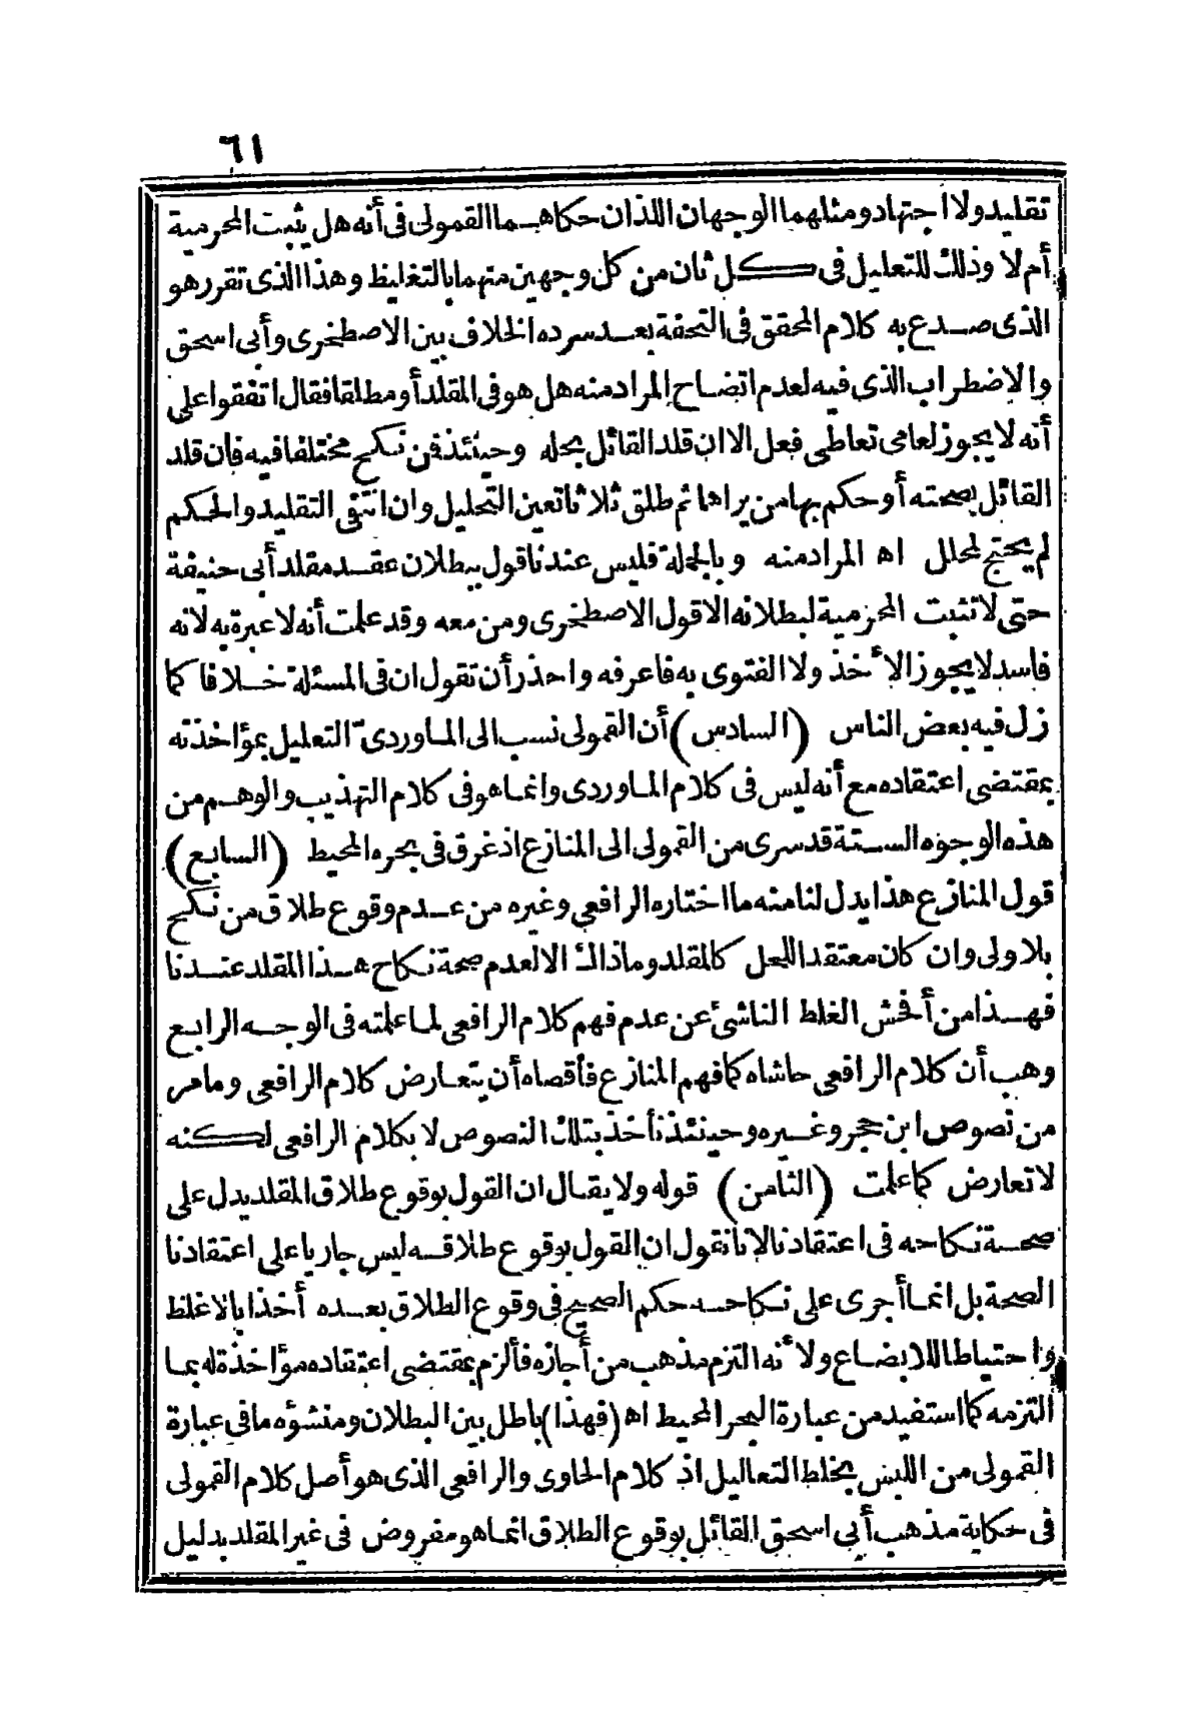 ٦١
تقليد ولا اجتهاد ومثلهما الوجهان اللذان حكاهما القمولى فى أنه هل يثبت المحرمية
أم لا وذلك للتعليل فى كل ثان من كل وجهين منهما بالتغليظ وهذا الذى تقرر هو
الذى صدع به كلام المحقق فى التحفة بعد سرده الخلاف بين الاصطخرى وأبى اسحق
والاضطراب الذى فيه لعدم اتضاح المراد منه هل هو فى المقلد أو مطلقا فقال اتفقوا على
أنه لا يجوز لعامى تعاطى فعل الا ان قلد القائل بحله وحينئذ فمن نكح مختلفا فيه فان قلد
القائل بصحته أو حكم بها من يراها ثم طلق ثلاثا تعين التحليل وان انتفى التقليد والحكم
لم يحتج لمحلل اه المراد منه وبالجملة فليس عندنا قول ببطلان عقد مقلد أبى حنيفة
حتى لا تثبت المحرمية لبطلانه الا قول الاصطخرى ومن معه وقد علمت أنه لا عبرة به لانه
فاسد لا يجوز الأخذ ولا الفتوى به فاعرفه واحذر أن تقول ان فى المسئلة خلافا كما
زل فيه بعض الناس (السادس) أن القمولى نسب الى الماوردىّ التعليل بمؤاخذته
بمقتضى اعتقاده مع أنه ليس فى كلام الماوردى وانما هو فى كلام التهذيب والوهم من
هذه الوجوه الستة قد سرى من القمولى الى المنازع اذ غرق فى بحره المحيط (السابع)
قول المنازع هذا يدل لنا منه ما اختاره الرافعى وغيره من عدم وقوع طلاق من نكح
بلا ولى وان كان معتقدا للحل كالمقلد وماذاك الا لعدم صحة نكاح هذا المقلد عندنا
فهذا من أفحش الغلط الناشئ عن عدم فهم كلام الرافعى لما علمته فى الوجه الرابع
وهب أن كلام الرافعى حاشاه كما فهم المنازع فأقصاه أن يتعارض كلام الرافعى ومامر
من نصوص ابن حجر وغيره وحينئذ نأخذ بتلك النصوص لا بكلام الرافعى لكنه
لا تعارض كما علمت (الثامن) قوله ولا يقال ان القول بوقوع طلاق المقلد يدل على
صحة نكاحه فى اعتقادنا لانا نقول ان القول بوقوع طلاقه ليس جاريا على اعتقادنا
الصحة بل انما أجرى على نكاحه حكم الصحيح فى وقوع الطلاق بعده أخذا بالاغلظ
واحتياطا للابضاع ولأنه التزم مذهب من أجازه فألزم بمقتضى اعتقاده مؤاخذة له بما
التزمه كما استفيد من عبارة البحر المحيط اه (فهذا) باطل بين البطلان ومنشؤه ما فى عبارة
القمولى من اللبس بخلط التعاليل اذ كلام الحاوى والرافعى الذى هو أصل كلام القمولى
فى حكاية مذهب أبى اسحق القائل بوقوع الطلاق انما هو مفروض فى غير المقلد بدليل